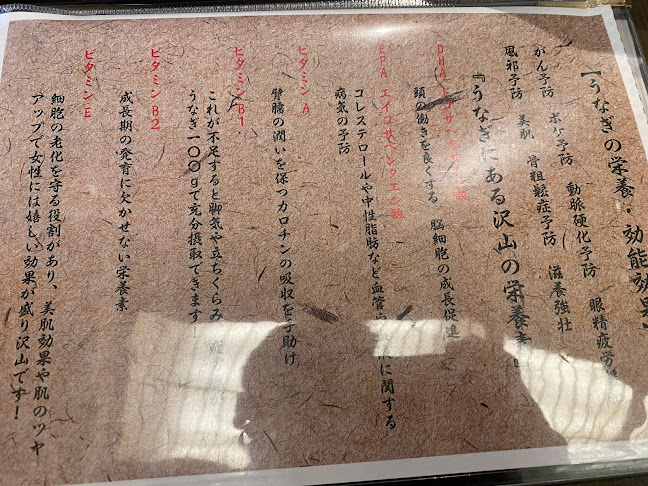 【うなぎの栄養・効能効果
がん予防 ボケ予防 動脈硬化予防 眼精疲労
風邪予防 美肌 骨粗鬆症予防 滋養強壮
『うなぎにある沢山の栄養素』
DHA
頭の働きを良くする 脳細胞の成長促進
EPA エイコサペンタエン酸
コレステロールや中性脂肪など血管 に関する
病気の予防
ビタミンA
臂膈の潤いを保つカロチンの吸収を手助け
ビタミンB1
これが不足すると脚気や立ちくらみ
うなぎ一〇〇gで充分摂取できます
ビタミンB2
成長期の発育に欠かせない栄養素
ビタミンE
細胞の老化を守る役割があり、美肌効果や肌のツヤ
アップで女性には嬉しい効果が盛り沢山です!